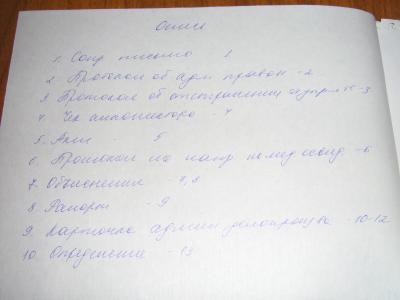 Опись
1. Сопр письмо 1
2. Протокол об адм правон - 2
3. Протокол об отстранении от управ тс - 3
4. Чек алкотестора - 4
5. Акт - 5
6. Протокол на напр на мед освид. - 6
7. Объяснения - 7,8
8. Рапорт - 9
9. Карточка админ делопроизв - 10-12
10. Определение - 13